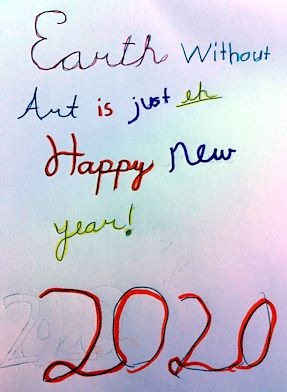 Earth Without
Art is just eh
Happy New
year!
2020